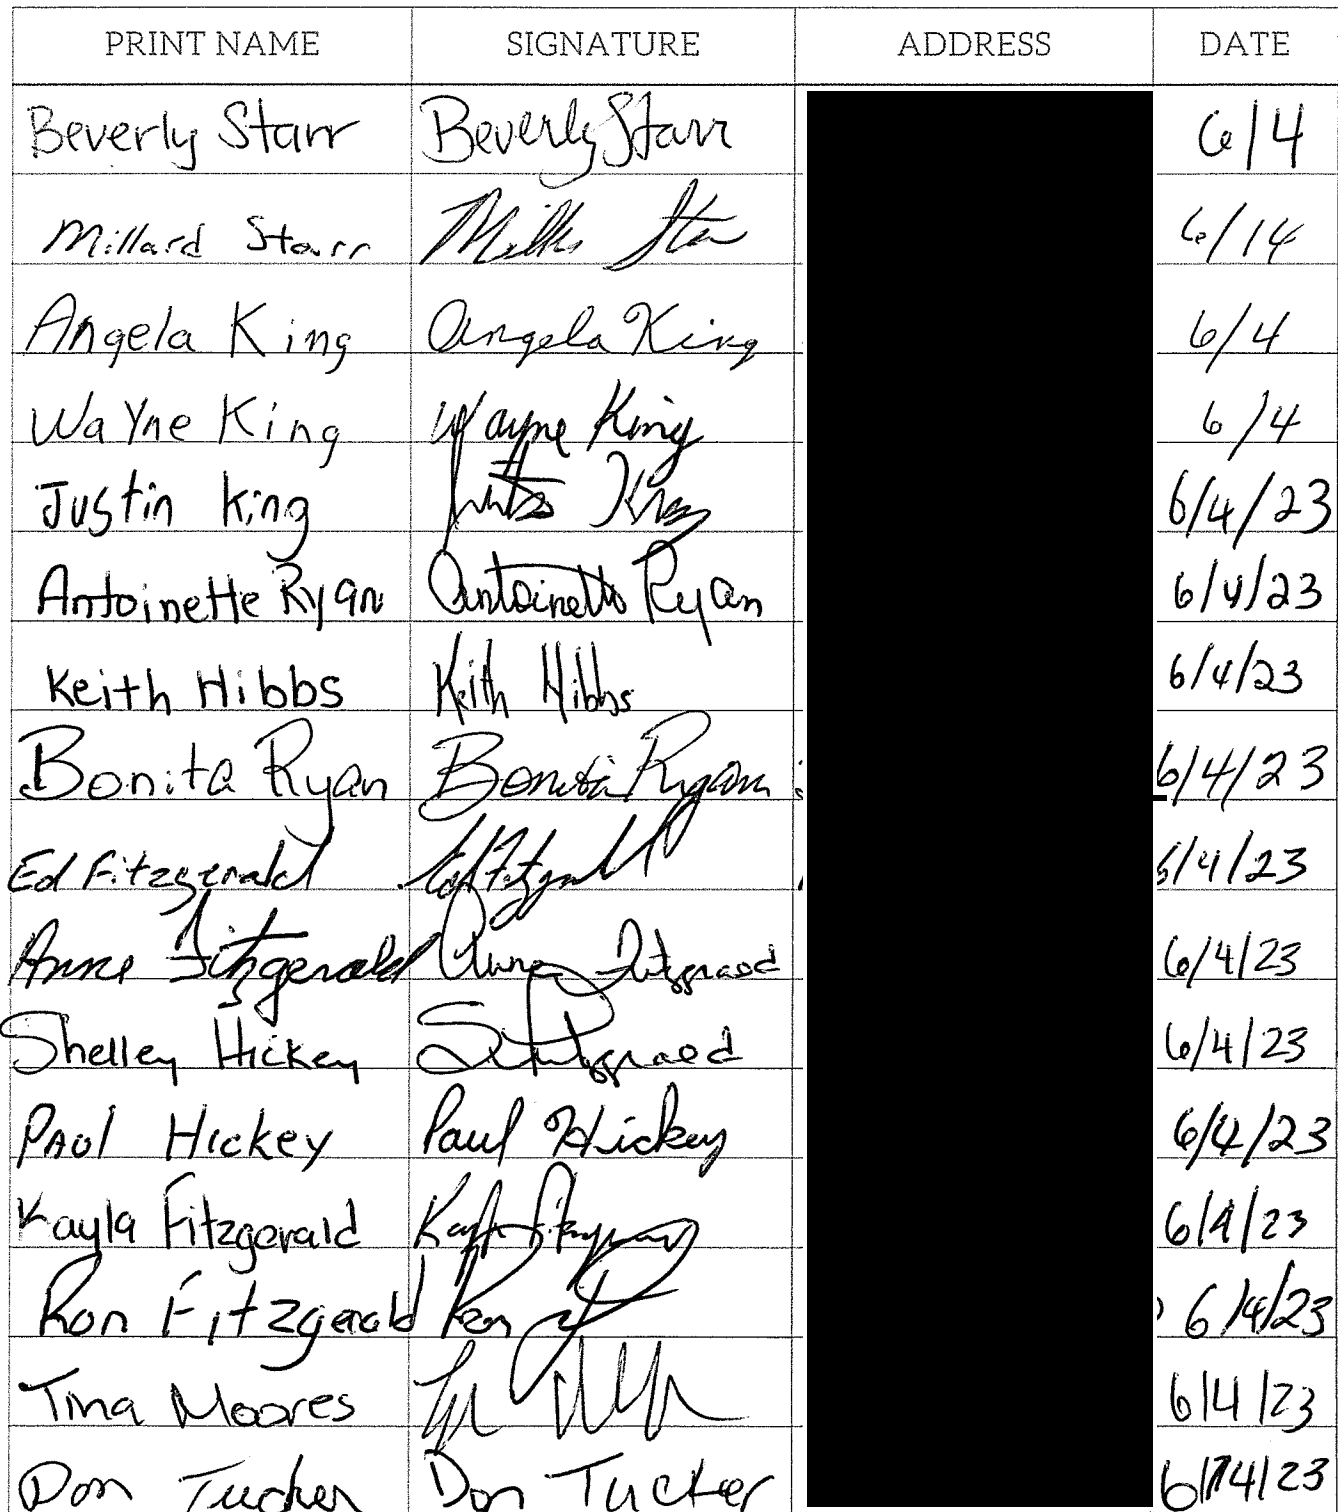 PRINT NAME SIGNATURE ADDRESS DATE
Beverly Starr Beverly Starr 6/4
Millard Starr 6/14
Angela King Angela King 6/4
Wayne King Wayne King 6/4
Justin King 6/4/23
Antoinette Ryan Antoinette Ryan 6/4/23
Keith Hibbs Keith Hibbs 6/4/23
Bonita Ryan Bonita Ryan 6/4/23
Ed Fitzgerald Ed Fitzgerald /4/23
Anne Fitzgerald Anne 6/4/23
Shelley Hickey 6/4/23
PAul Hickey Paul Hickey 6/4/23
Kayla Fitzgerald 6/4/23
Ron Fitzgerald Ron 6/4/23
Tina Moores 6/4/23
Don Tucker Don Tucker